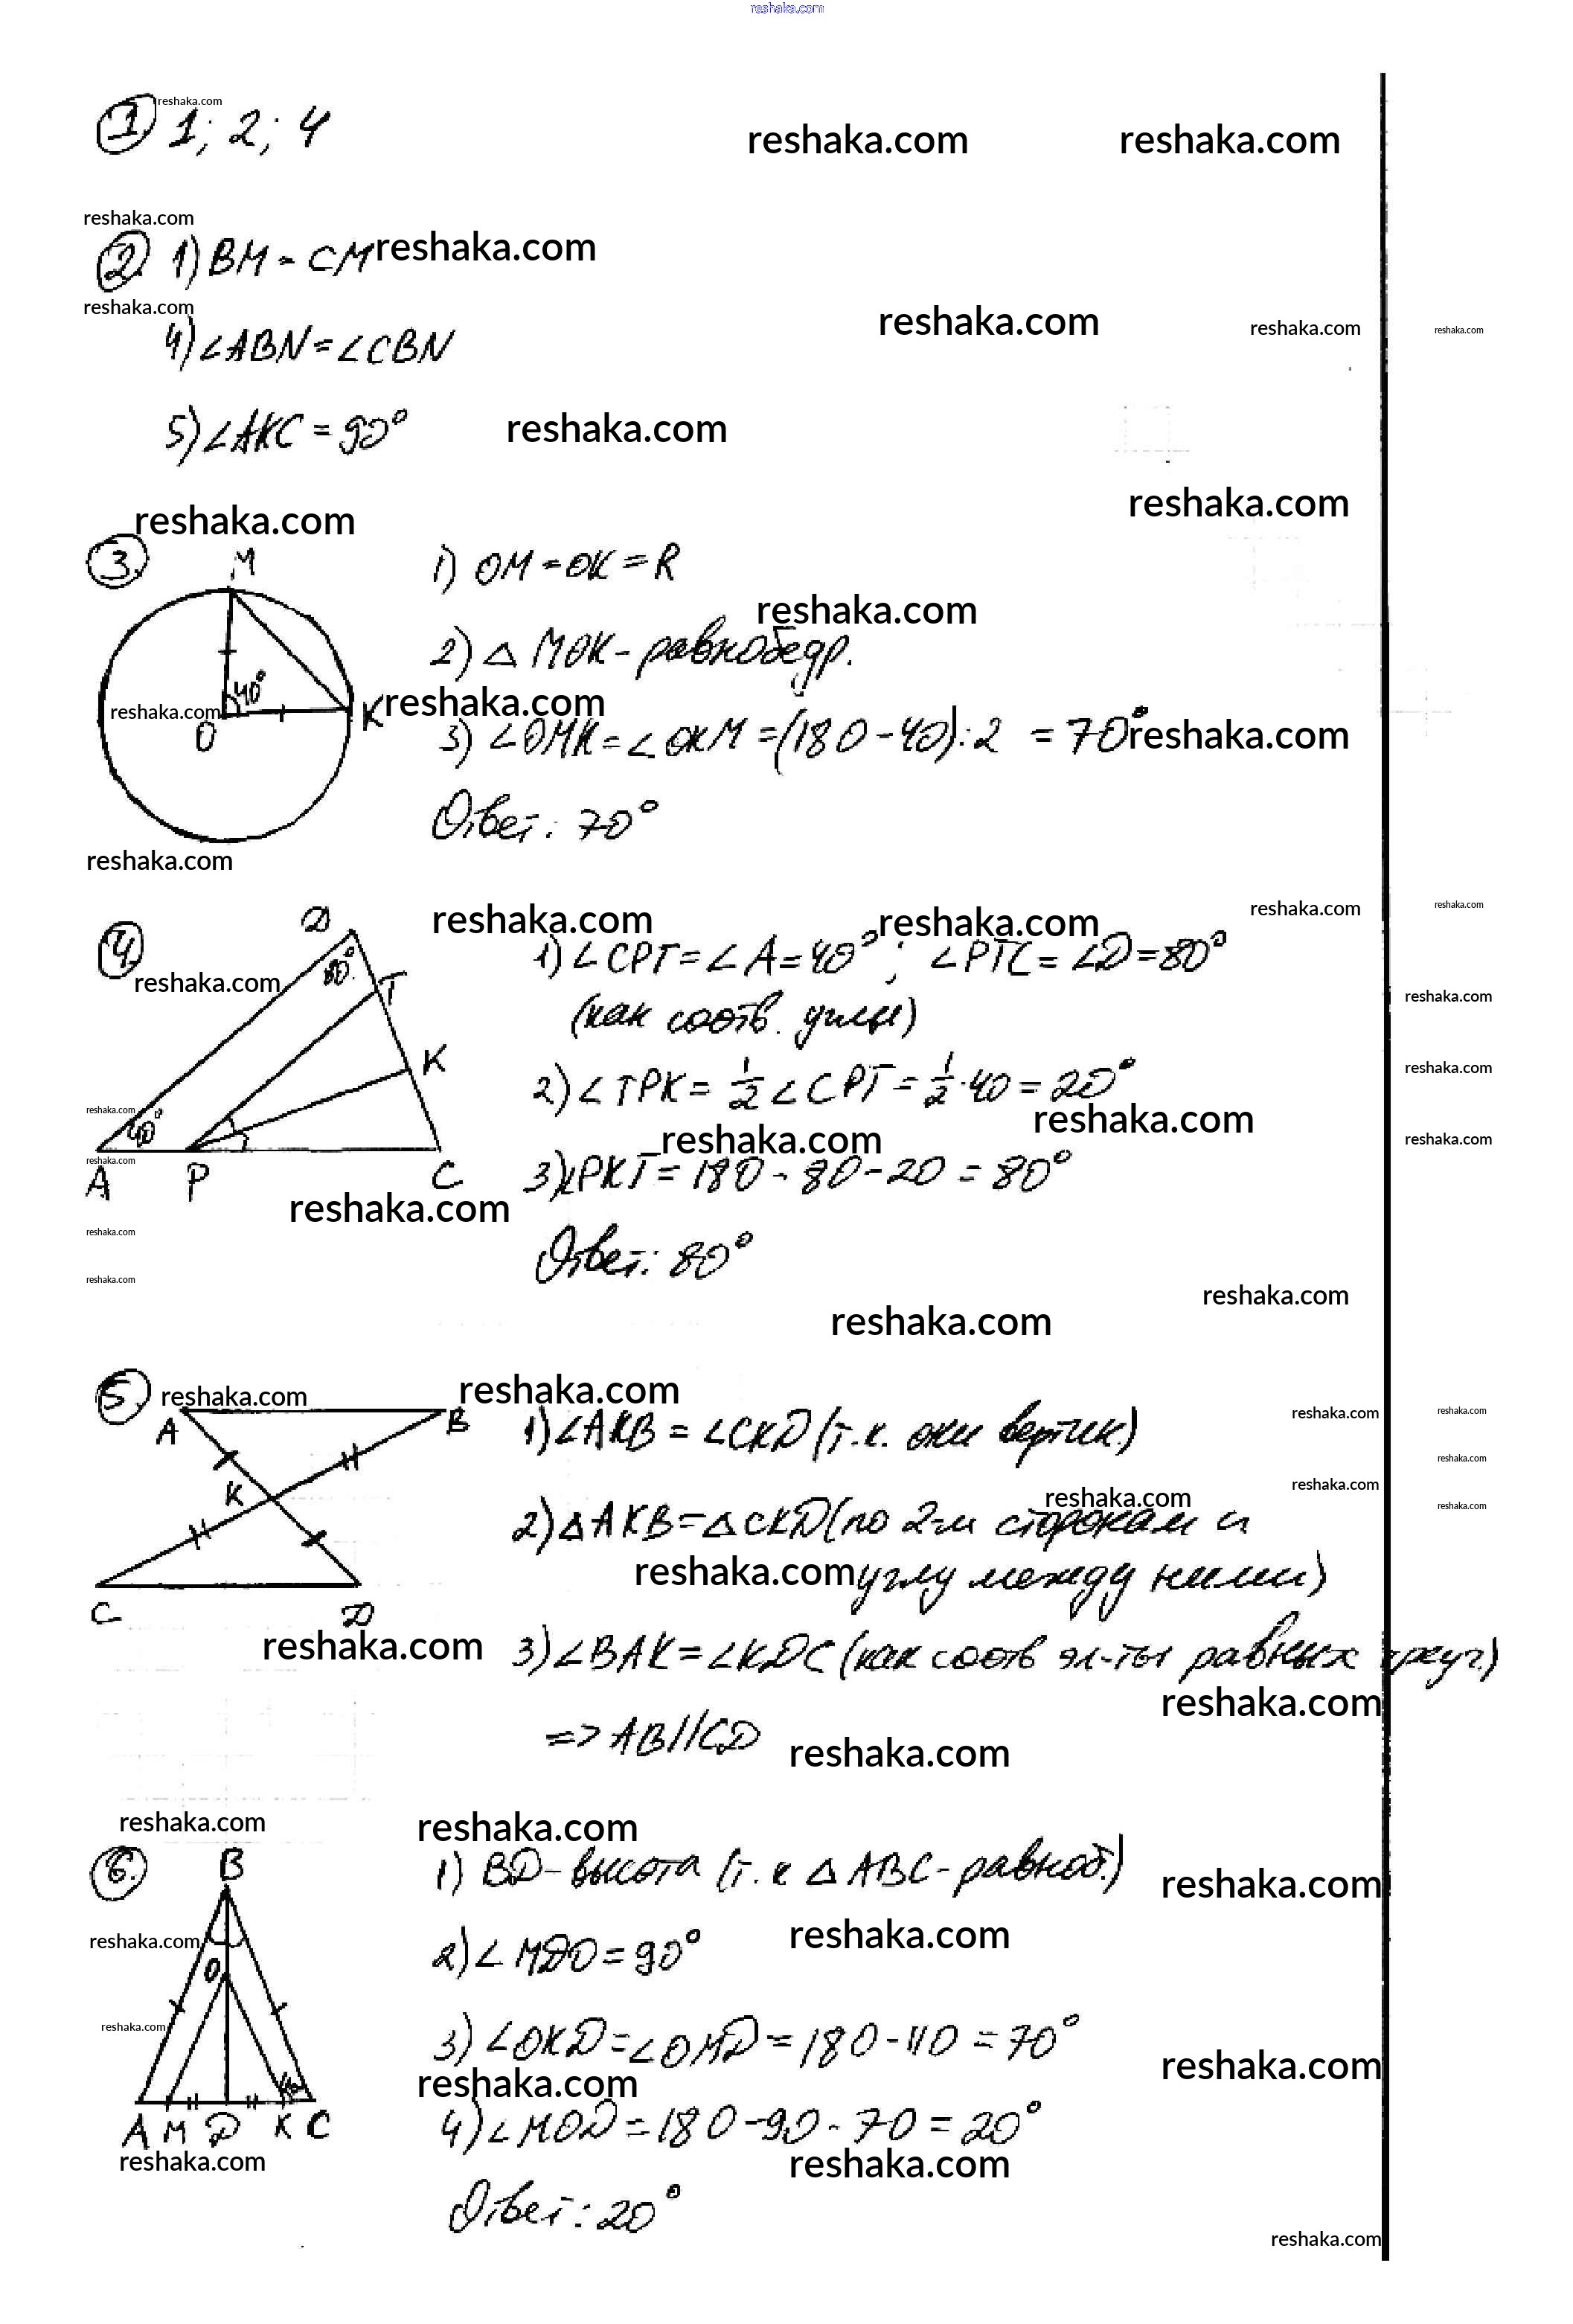 reshaka.com
① 1; 2; 4
reshaka.com
reshaka.com reshaka.com
reshaka.com
② 1) BM = CM reshaka.com
reshaka.com
reshaka.com reshaka.com reshaka.com
4) ∠ABN = ∠CBN
5) ∠AKC = 90° reshaka.com
reshaka.com
reshaka.com
③ M
1) OM = OK = R
reshaka.com
2) △ MOK - равнобедр.
40°
reshaka.com O K reshaka.com
3) ∠OMK = ∠OKM = (180 - 40) : 2 = 70° reshaka.com
Ответ: 70°
reshaka.com
④ D reshaka.com reshaka.com reshaka.com reshaka.com
80° T
reshaka.com
1) ∠CPT = ∠A = 40° ; ∠PTC = ∠D = 80°
reshaka.com
(как соотв. углы)
K
2) ∠TPK = 1/2 ∠CPT = 1/2 · 40 = 20°
reshaka.com
reshaka.com 40° reshaka.com
reshaka.com reshaka.com
reshaka.com
A P C
3) ∠PKT = 180 - 80 - 20 = 80°
reshaka.com
reshaka.com
Ответ: 80°
reshaka.com
reshaka.com
reshaka.com
⑤ reshaka.com reshaka.com
A B
1) ∠AKB = ∠CKD (т.к. они вертик.)
reshaka.com reshaka.com
reshaka.com
K
reshaka.com reshaka.com
reshaka.com
2) △AKB = △CKD (по 2-м сторонам и
reshaka.com углу между ними)
C D
reshaka.com
3) ∠BAK = ∠KDC (как соотв эл-ты равных треуг.)
reshaka.com
=> AB//CD reshaka.com
reshaka.com reshaka.com
⑥ B
1) BD - высота (т.к △ ABC - равноб.)
reshaka.com
reshaka.com reshaka.com
O
2) ∠MDO = 90°
reshaka.com
3) ∠OKD = ∠OMD = 180 - 110 = 70°
reshaka.com
reshaka.com
A M D K C
4) ∠MOD = 180 - 90 - 70 = 20°
reshaka.com reshaka.com
Ответ: 20°
reshaka.com